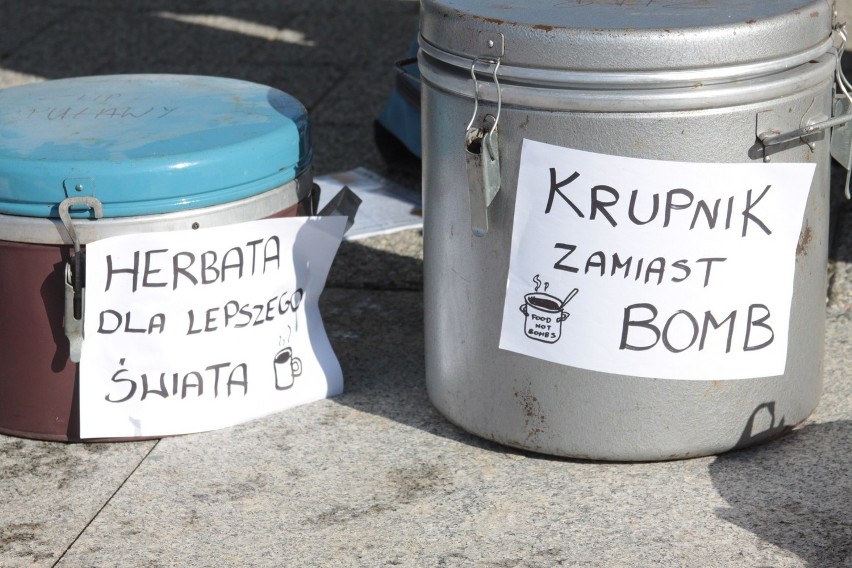 HERBATA
DLA LEPSZEGO
ŚWIATA
KRUPNIK
ZAMIAST
BOMB
FOOD
NOT
BOMBS